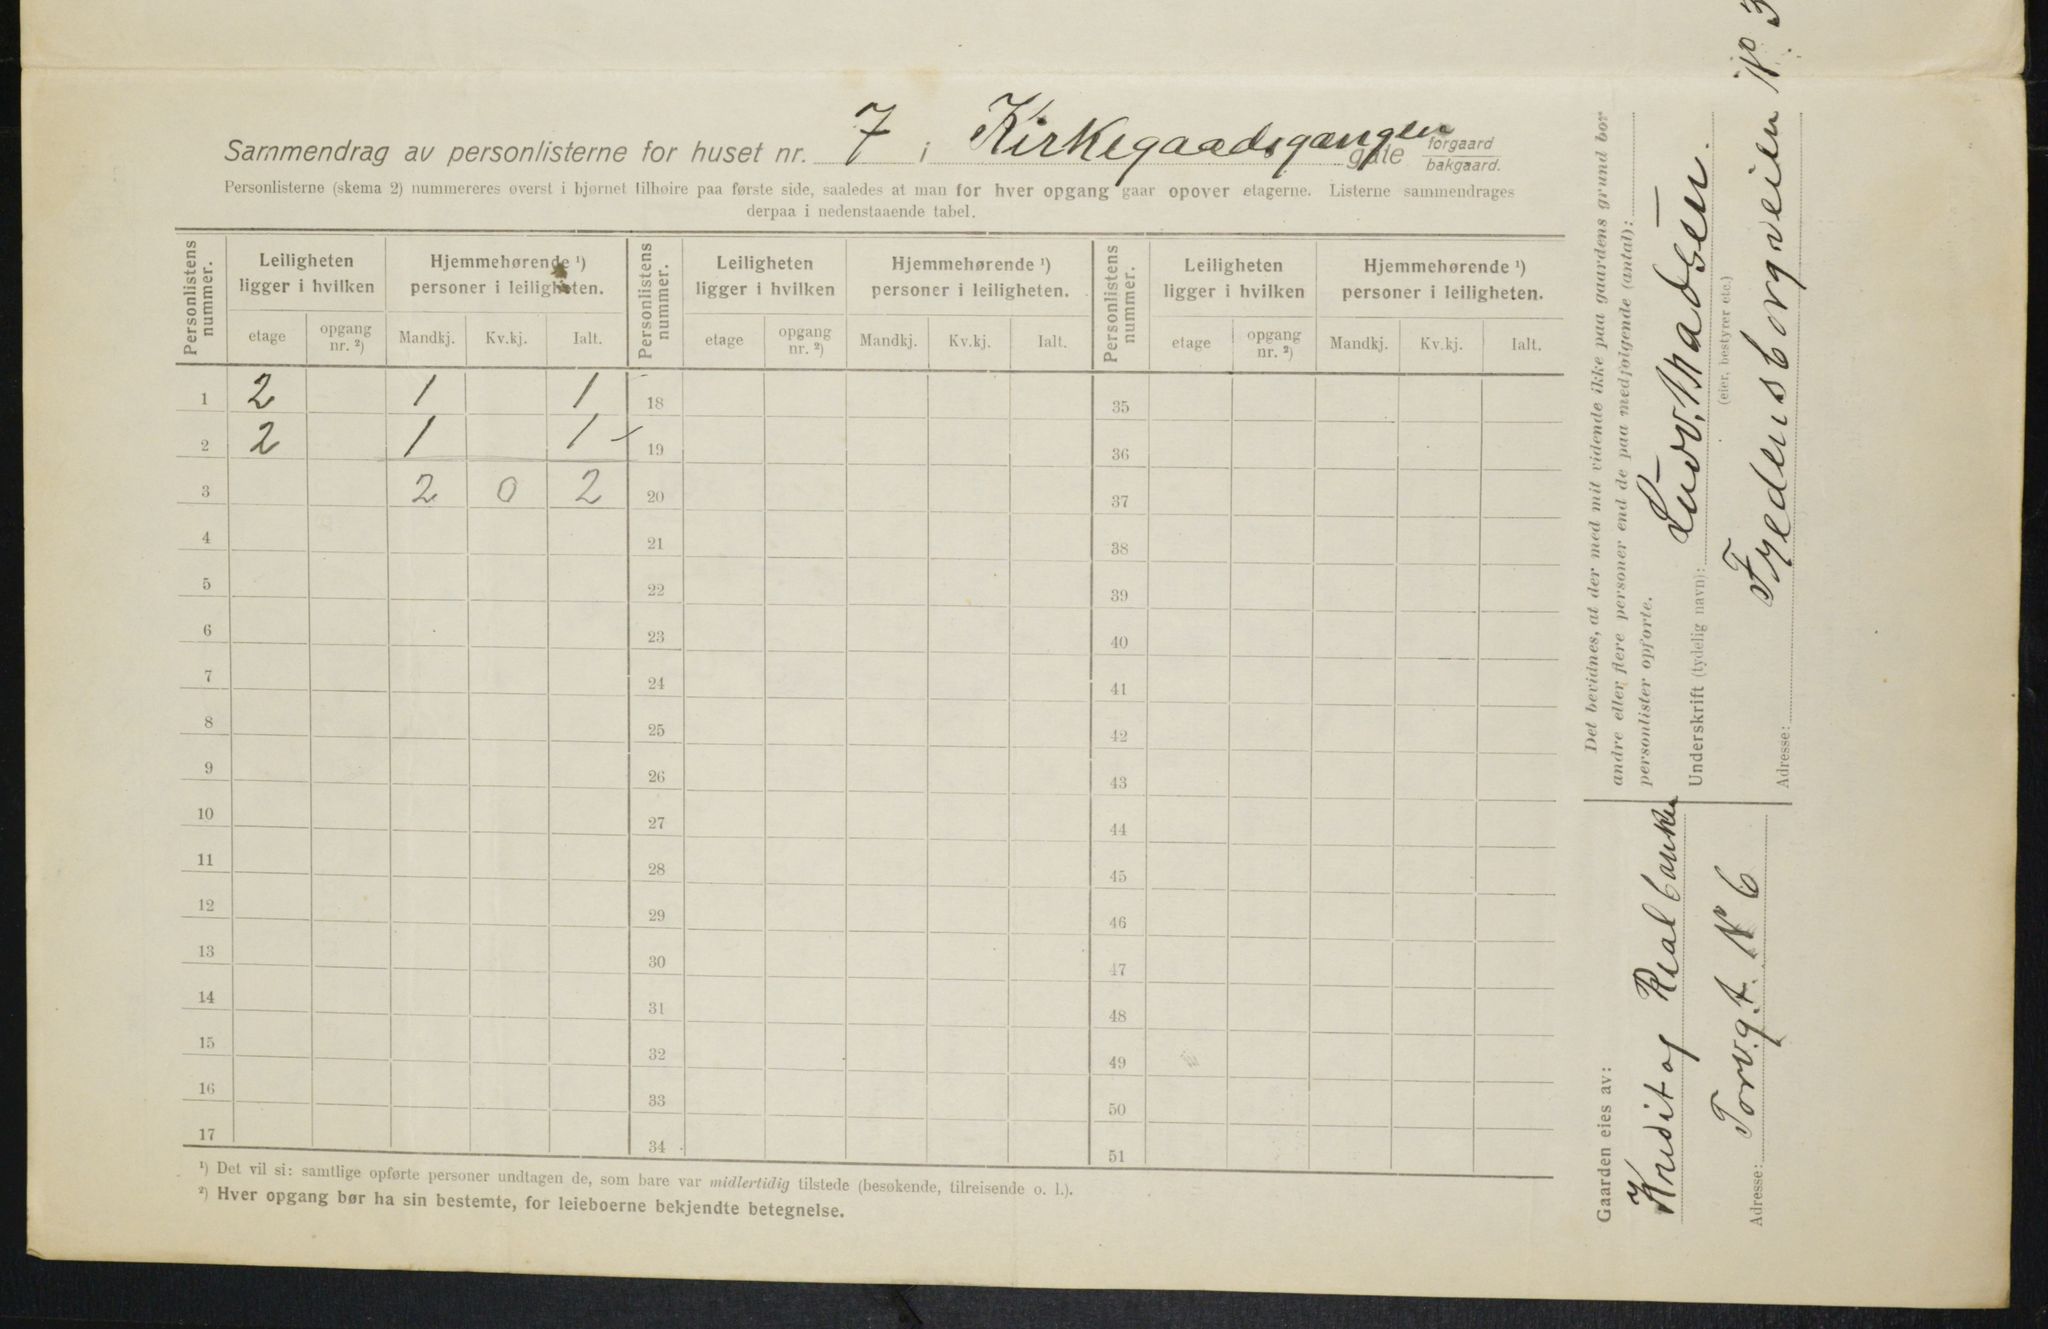 Sammendrag av personlisterne for huset nr. 7 i Kirkegaadsgangen gate forgaard bakgaard.
Personlisterne (skema 2) nummereres øverst i hjørnet tilhøire paa første side, saaledes at man for hver opgang gaar opover etagerne. Listerne sammendrages
derpaa i nedenstaaende tabel.
Personlistens nummer. Leiligheten ligger i hvilken Hjemmehørende ¹) personer i leiligheten. Personlistens nummer. Leiligheten ligger i hvilken Hjemmehørende ¹) personer i leiligheten. Personlistens nummer. Leiligheten ligger i hvilken Hjemmehørende ¹) personer i leiligheten.
etage opgang nr. ²) Mandkj. Kv.kj. Ialt. etage opgang nr. ²) Mandkj. Kv.kj. Ialt. etage opgang nr. ²) Mandkj. Kv.kj. Ialt.
1 2 1 1 18 35
2 2 1 1 19 36
3 2 0 2 20 37
4 21 38
5 22 39
6 23 40
7 24 41
8 25 42
9 26 43
10 27 44
11 28 45
12 29 46
13 30 47
14 31 48
15 32 49
16 33 50
17 34 51
¹) Det vil si: samtlige opførte personer undtagen de, som bare var midlertidig tilstede (besøkende, tilreisende o. l.).
²) Hver opgang bør ha sin bestemte, for leieboerne bekjendte betegnelse.
Det bevidnes, at der med mit vidende ikke paa gaardens grund bor
andre eller flere personer end de paa medfølgende (antal):
personlister opførte.
Underskrift (tydelig navn): Ludv. Madsen.
(eier, bestyrer etc.)
Adresse: Fredensborgveien No. 3
Gaarden eies av:
Kredit og Realbanken
Adresse: Torvgt. N 6